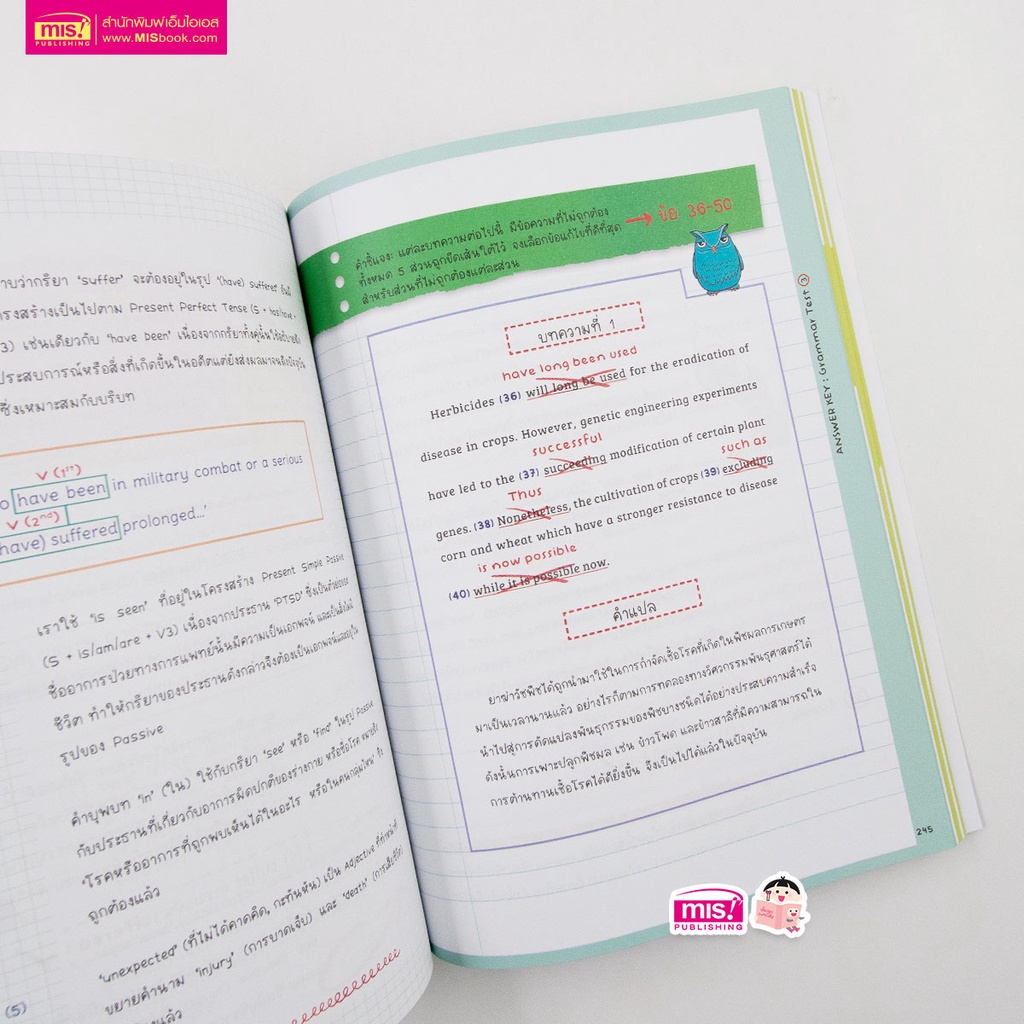 mis!
PUBLISHING
สำนักพิมพ์เอ็มไอเอส
www.MISbook.com
าบว่ากริยา 'suffer' จะต้องอยู่ในรูป '(have) suffered'
ครงสร้างเป็นไปตาม Present Perfect Tense (S + has/have +
3) เช่นเดียวกับ 'have been' เนื่องจากกริยาทั้งคู่นั้นใช้อธิบายถึง
ประสบการณ์หรือสิ่งที่เกิดขึ้นในอดีตแต่ยังส่งผลมาจนถึงปัจจุบัน
ซึ่งเหมาะสมกับบริบท
V (1st)
o have been in military combat or a serious
V (2nd)
have) suffered prolonged...'
เราใช้ 'is seen' ที่อยู่ในโครงสร้าง Present Simple Passive
(S + is/am/are + V3) เนื่องจากประธาน 'PTSD' ซึ่งเป็นตัวย่อของ
ชื่ออาการป่วยทางการแพทย์นั้นมีความเป็นเอกพจน์ และเป็นสิ่งไม่มี
ชีวิต ทำให้กริยาของประธานดังกล่าวจึงต้องเป็นเอกพจน์และอยู่ใน
รูปของ Passive
คำบุพบท 'in' (ใน) ใช้กับกริยา 'see' หรือ 'find' ในรูป Passive
กับประธานที่เกี่ยวกับอาการผิดปกติของร่างกาย หรือชื่อโรค หมายถึง
'โรคหรืออาการที่ถูกพบเห็นได้ในอะไร หรือในคนกลุ่มไหน' จึง
ถูกต้องแล้ว
(5)
'unexpected' (ที่ไม่ได้คาดคิด, กะทันหัน) เป็น Adjective ที่ทำหน้าที่
ขยายคำนาม 'injury' (การบาดเจ็บ) และ 'death' (การเสียชีวิต)
งแล้ว
คำชี้แจง: แต่ละบทความต่อไปนี้ มีข้อความที่ไม่ถูกต้อง
ทั้งหมด 5 ส่วนถูกขีดเส้นใต้ไว้ จงเลือกข้อแก้ไขที่ดีที่สุด
สำหรับส่วนที่ไม่ถูกต้องแต่ละส่วน
ข้อ 36-50
บทความที่ 1
have long been used
Herbicides (36) will long be used for the eradication of
disease in crops. However, genetic engineering experiments
successful
have led to the (37) succeeding modification of certain plant
Thus
such as
genes. (38) Nonetheless, the cultivation of crops (39) excluding
corn and wheat which have a stronger resistance to disease
is now possible
(40) while it is possible now.
คำแปล
ยาฆ่าวัชพืชได้ถูกนำมาใช้ในการกำจัดเชื้อโรคที่เกิดในพืชผลการเกษตร
มาเป็นเวลานานแล้ว อย่างไรก็ตามการทดลองทางวิศวกรรมพันธุศาสตร์ได้
นำไปสู่การดัดแปลงพันธุกรรมของพืชบางชนิดได้อย่างประสบความสำเร็จ
ดังนั้นการเพาะปลูกพืชผล เช่น ข้าวโพด และข้าวสาลีที่มีความสามารถใน
การต้านทานเชื้อโรคได้ดียิ่งขึ้น จึงเป็นไปได้แล้วในปัจจุบัน
ANSWER KEY : Grammar Test 3
245
mis!
PUBLISHING